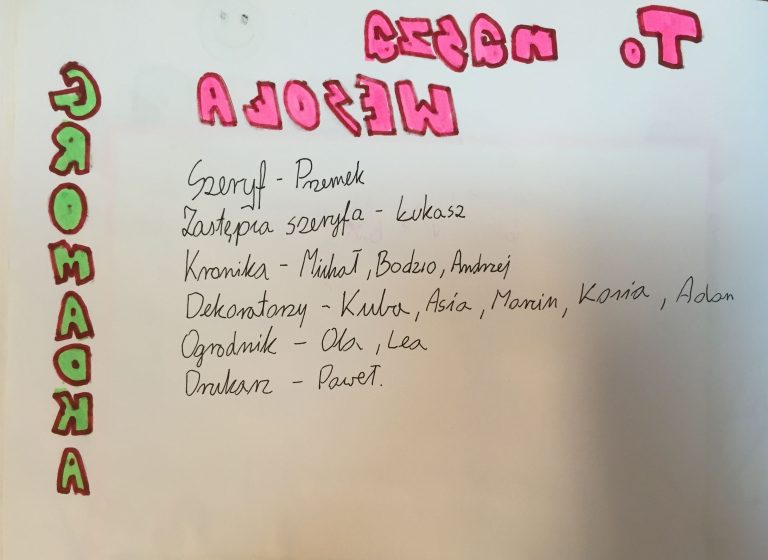 T. nasza
WESOŁA
GROMADKA
Szeryf - Przemek
Zastępca szeryfa - Łukasz
Kronika - Michał, Bodzio, Andrzej
Dekoratorzy - Kuba, Asia, Marcin, Kasia, Adam
Ogrodnik - Ola, Lea
Drukarz - Paweł.